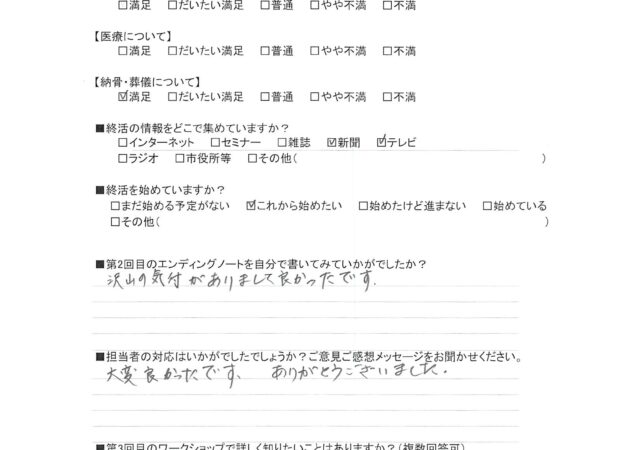 □満足 □だいたい満足 □普通 □やや不満 □不満
【医療について】
□満足 □だいたい満足 □普通 □やや不満 □不満
【納骨・葬儀について】
☑満足 □だいたい満足 □普通 □やや不満 □不満
■終活の情報をどこで集めていますか？
□インターネット □セミナー □雑誌 ☑新聞 ☑テレビ
□ラジオ □市役所等 □その他( )
■終活を始めていますか？
□まだ始める予定がない ☑これから始めたい □始めたけど進まない □始めている
□その他( )
■第2回目のエンディングノートを自分で書いてみていかがでしたか？
沢山の気付がありまして良かったです.
■担当者の対応はいかがでしたでしょうか？ご意見ご感想メッセージをお聞かせください。
大変良かったです、 ありがとうございました.
■第3回目のワークショップで詳しく知りたいことはありますか？(複数回答可)